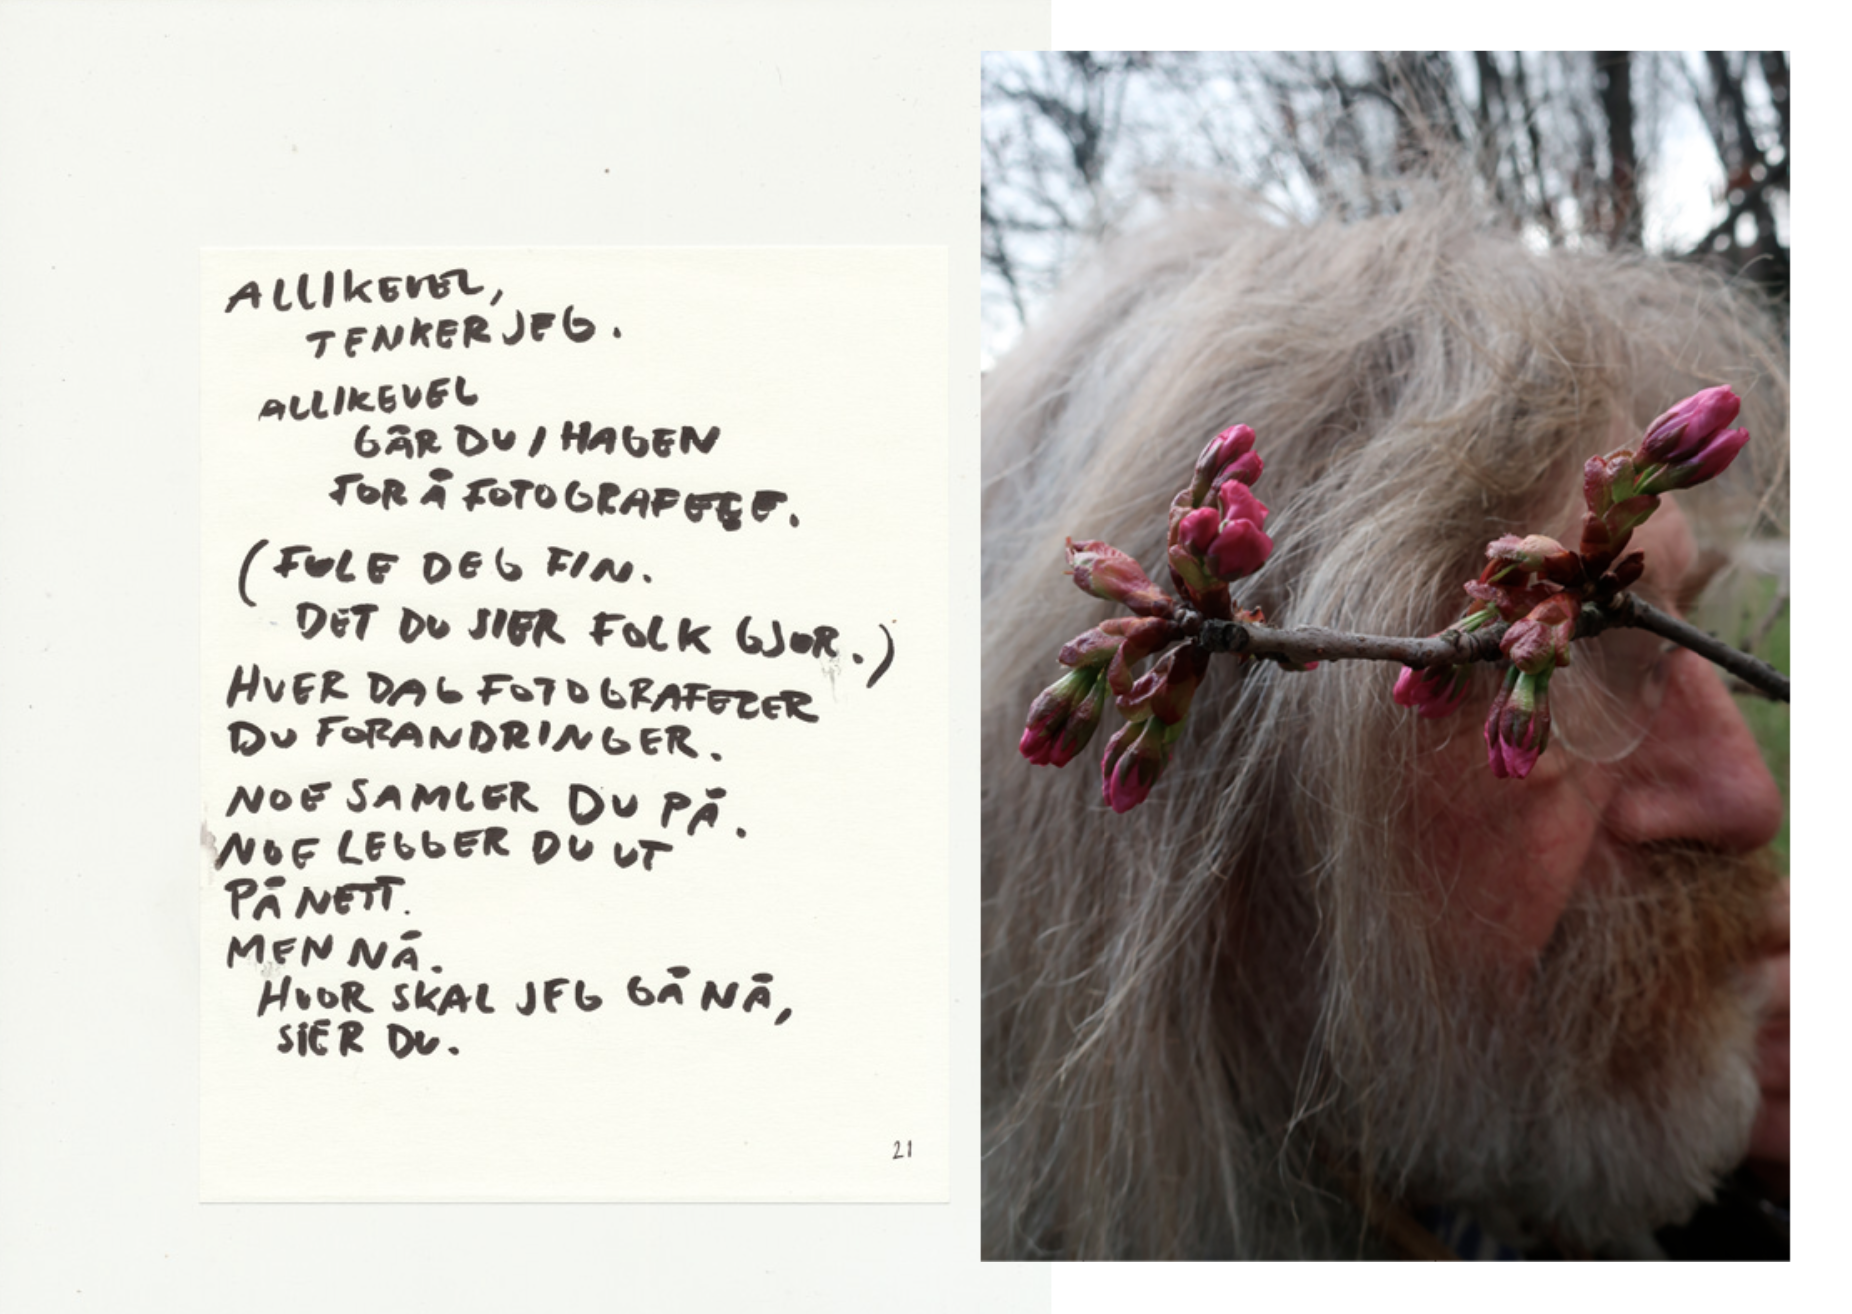 ALLIKEVEL,
TENKER JEG.
ALLIKEVEL
GÅR DU I HAGEN
FOR Å FOTOGRAFERE.
(FØLE DEG FIN.
DET DU SIER FOLK GJØR.)
HVER DAG FOTOGRAFERER
DU FORANDRINGER.
NOE SAMLER DU PÅ.
NOE LEGGER DU UT
PÅ NETT.
MEN NÅ.
HVOR SKAL JEG GÅ NÅ,
SIER DU.
21